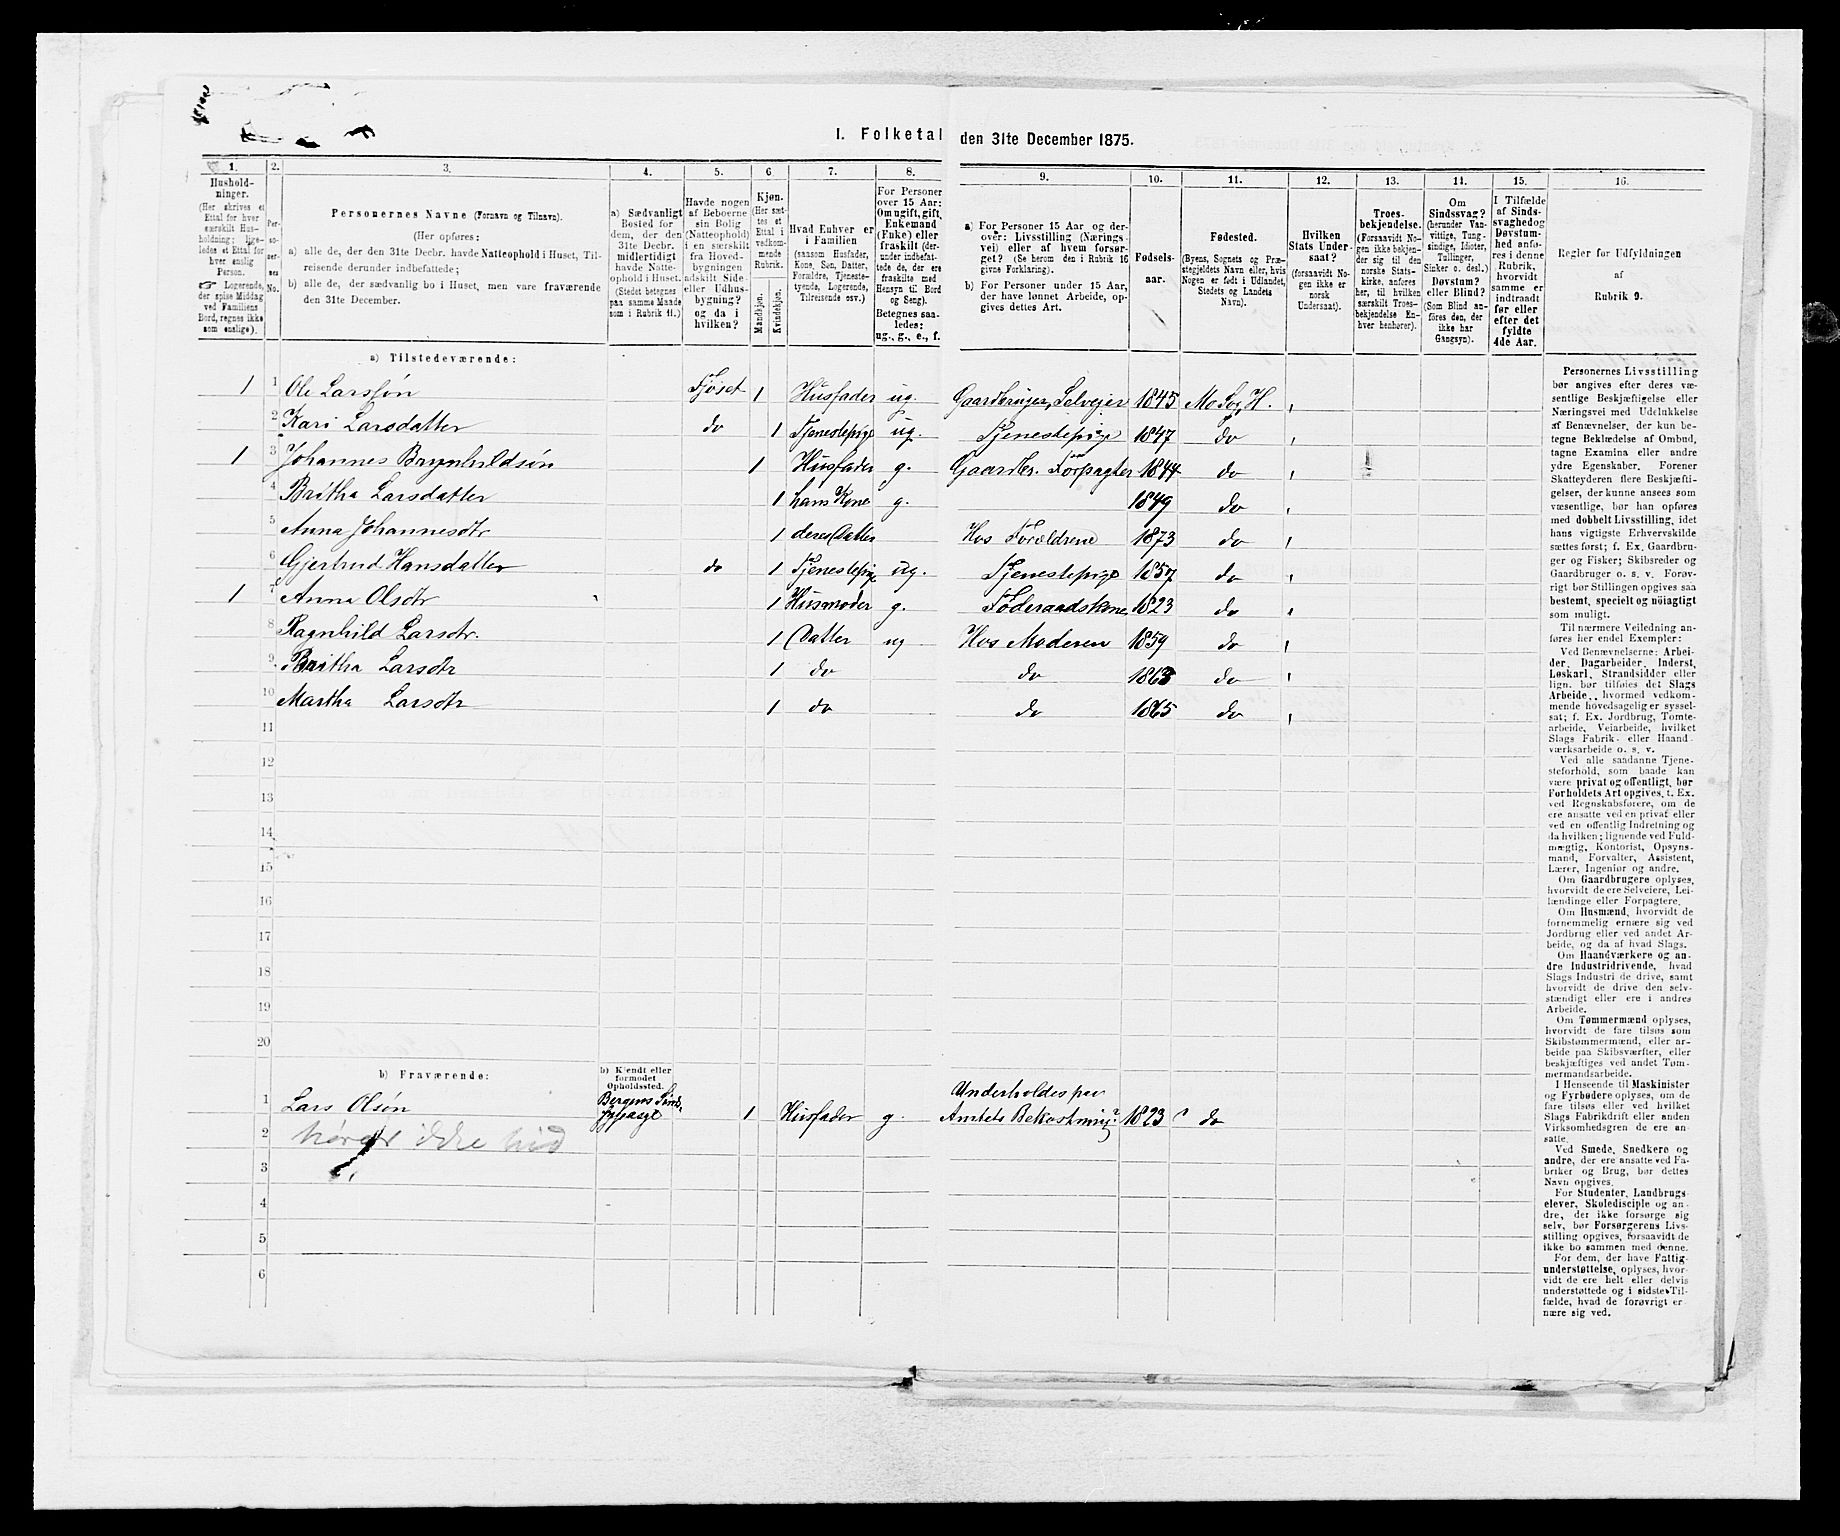 I. Folketal den 31te December 1875.
1. 2. 3. 4. 5. 6 7. 8. 9. 10. 11. 12. 13. 14. 15. 16.
Hushold-
ninger.
(Her skrives et
Ettal for hver
særskilt Hus-
holdning; lige-
ledes et Ettal for
hver enslig
Person.
☛ Logerende,
der spise Middag
ved Familiens
Bord, regnes ikke
som enslige).
Per-
so-
ner-
nes
No.
Personernes Navne (Fornavn og Tilnavn).
(Her opføres:
a) alle de, der den 31te Decbr. havde Natteophold i Huset, Til-
reisende derunder indbefattede;
b) alle de, der sædvanlig bo i Huset, men vare fraværende
den 31te December.
a) Sædvanligt
Bosted for
dem, der den
31te Decbr.
midlertidigt
havde Natte-
ophold i Huset.
(Stedet betegnes
paa samme Maade
som i Rubrik 11.)
Havde nogen
af Beboerne
sin Bolig
(Natteophold)
i en særskilt
fra Hoved-
bygningen
adskilt Side-
eller Udhus-
bygning?
og da i
hvilken?
Kjøn.
(Her sæt-
tes et
Ettal i
vedkom-
mende
Rubrik.
Mandkjøn.
Kvindekjøn.
Hvad Enhver er
i Familien
(saasom Husfader,
Kone, Søn, Datter,
Forældre, Tjeneste-
tyende, Logerende,
Tilreisende osv.)
For Personer
over 15 Aar:
Om ugift, gift,
Enkemand
(Enke) eller
fraskilt (der-
under indbefat-
tede de, der ere
fraskilte med
Hensyn til Bord
og Seng).
Betegnes saa-
ledes:
ug., g., e., f.
a) For Personer 15 Aar og der-
over: Livsstilling (Nærings-
vei) eller af hvem forsør-
get? (Se herom den i Rubrik 16
givne Forklaring).
b) For Personer under 15 Aar,
der have lønnet Arbeide, op-
gives dettes Art.
Fødsels-
aar.
Fødested.
(Byens, Sognets og Præ-
stegjeldets Navn eller, hvis
Nogen er født i Udlandet,
Stedets og Landets
Navn).
Hvilken
Stats Under-
saat?
(forsaavidt No-
gen ikke er
norsk
Undersaat).
Troes-
bekjendelse.
(Forsaavidt No-
gen ikke bekjen-
der sig til den
norske Stats-
kirke, anføres
her, til hvilken
særskilt Troes-
bekjendelse En-
hver henhører).
Om
Sindssvag?
(herunder Van-
vittige, Tung-
sindige, Idioter,
Tullinger,
Sinker o. desl.)
Døvstum?
eller Blind?
(Som Blind an-
føres den, der
ikke har
Gangsyn).
I Tilfælde
af Sinds-
svaghed og
Døvstum-
hed anfø-
res i denne
Rubrik,
hvorvidt
samme er
indtraadt
før eller
efter det
fyldte
4de Aar.
Regler for Udfyldningen
af
Rubrik 9.
a) Tilstedeværende:
1 1 Ole Larssøn Fjøset 1 Husfader ug. Gaardbruger, Selveier 1845 Mo Sog, H.
2 Kari Larsdatter do 1 Tjenestepige ug. Tjenestepige 1847 do
1 3 Johannes Brynhildsøn 1 Husfader g. Gaardbr. Forpagter 1844 do
4 Britha Larsdatter 1 hans Kone g. 1849 do
5 Anna Johannesdtr 1 deres Datter Hos Forældrene 1873 do
6 Gjertrud Hansdatter do 1 Tjenestepige ug. Tjenestepige 1857 do
1 7 Anna Olsdtr 1 Husmoder g. Føderaadskone 1823 do
8 Ragnhild Larsdtr. 1 Datter ug Hos Moderen 1859 do
9 Britha Larsdtr 1 do do 1863 do
10 Martha Larsdtr 1 do do 1865 do
11
12
13
14
15
16
17
18
19
20
b) Fraværende:
b) Kjendt eller
formodet
Opholdssted.
1 Lars Olsøn Bergens 1 Husfader g. Underholdes paa
Amtets Bekostning 1823 do
2 hører ikke hid
3
4
5
6
Personernes Livsstilling
bør angives efter deres væ-
sentlige Beskjæftigelse eller
Næringsvei med Udelukkelse
af Benævnelser, der kun be-
tegne Beklædelse af Ombud,
tagne Examina eller andre
ydre Egenskaber. Forener
Skatteyderen flere Beskjæfti-
gelser, der kunne ansees som
væsentlige, bør han opføres
med dobbelt Livsstilling, idet
hans vigtigste Erhvervskilde
sættes først; f. Ex. Gaardbru-
ger og Fisker; Skibsreder og
Gaardbruger o. s. v. Forøv-
rigt bør Stillingen opgives saa
bestemt, specielt og nøiagtigt
som muligt.
Til nærmere Veiledning an-
føres her endel Exempler:
Ved Benævnelserne: Arbei-
der, Dagarbeider, Inderst,
Løskarl, Strandsidder eller
lign. bør tilføies det Slags
Arbeide, hvormed vedkom-
mende hovedsagelig er syssel-
sat; f. Ex. Jordbrug, Tomte-
arbeide, Veiarbeide, hvilket
Slags Fabrik- eller Haand-
værksarbeide o. s. v.
Ved alle saadanne Tjene-
steforhold, som baade kan
være privat og offentligt, bør
Forholdets Art opgives, t. Ex.
ved Regnskabsførere, om de
ere ansatte ved en privat eller
ved en offentlig Indretning og
da hvilken; lignende ved Fuld-
mægtig, Kontorist, Opsyns-
mand, Forvalter, Assistent,
Lærer, Ingeniør og andre.
Om Gaardbrugere oplyses,
hvorvidt de ere Selveiere, Lei-
lændinge eller Forpagtere.
Om Husmænd, hvorvidt de
fornemmelig ernære sig ved
Jordbrug eller ved andet Ar-
beide, og da af hvad Slags.
Om Haandværkere og an-
dre Industridrivende, hvad
Slags Industri de drive, samt
hvorvidt de drive den selv-
stændigt eller ere i andres
Arbeide.
Om Tømmermænd oplyses,
hvorvidt de fare tilsøs som
Skibstømmermænd, eller ar-
beide paa Skibsværfter, eller
beskjæftiges ved andet Tøm-
mermandsarbeide.
I Henseende til Maskinister
og Fyrbødere oplyses, om de
fare tilsøs eller ved hvilket
Slags Fabrikdrift eller anden
Virksomhedsgren de ere an-
satte.
Ved Smede, Snedkere og
andre, der ere ansatte ved Fa-
briker og Brug, bør dettes
Navn opgives.
For Studenter, Landbrugs-
elever, Skoledisciple og an-
dre, der ikke forsørge sig
selv, bør Forsørgerens Livs-
stilling opgives, forsaavidt de
ikke bo sammen med denne.
For dem, der have Fattig-
understøttelse, oplyses, hvor-
vidt de ere helt eller delvis
understøttede og i sidste Til-
fælde, hvad de forøvrigt er-
nære sig ved.